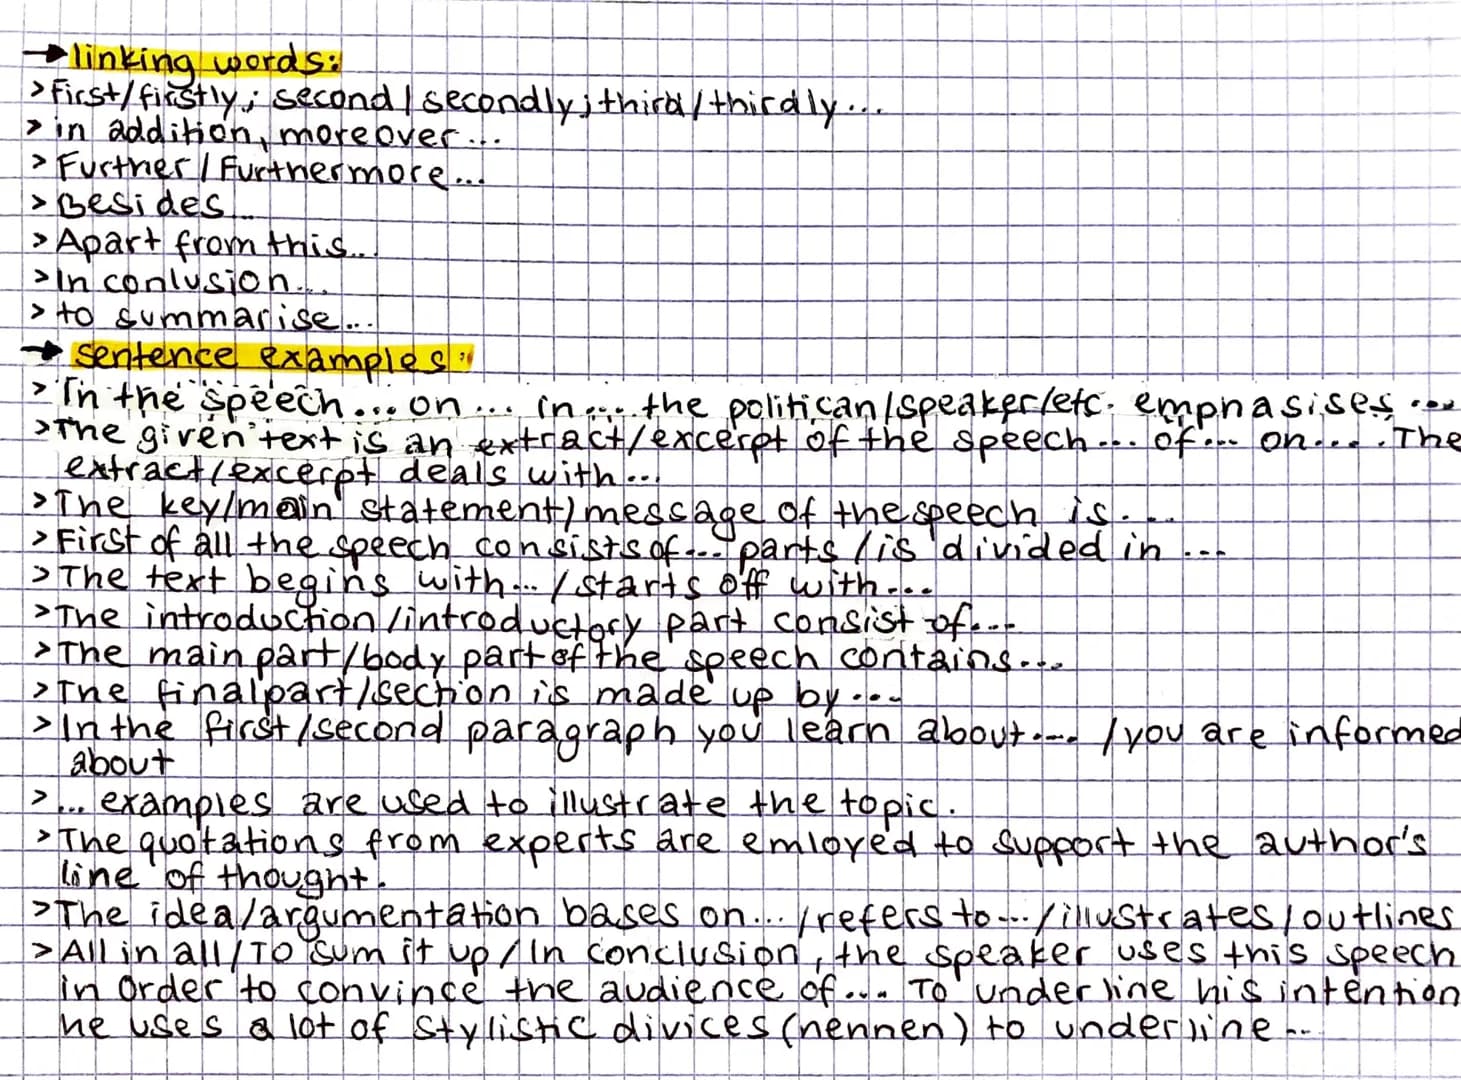 → linking words:
> first/firstly; second/secondly; third/thirdly...
> in addition, moreover...
> Further/Furthermore...
> Besides...
> Apart from this...
> In conlusion...
> to summarise...
→ sentence examples:
> In the speech... on... in... the politican/speaker/etc. emphasises...
> The given text is an extract/excerpt of the speech... of... on.... The
extract/excerpt deals with...
> The key/main statement/message of the speech is....
> First of all the speech consists of... parts/is divided in...
> The text begins with.../starts off with...
> The introduction/introductory part consist of...
> The main part/body part of the speech contains...
> The final part/section is made up by...
> In the first/second paragraph you learn about.... /you are informed
about
> ... examples are used to illustrate the topic.
> The quotations from experts are emloyed to support the author's
line of thought.
> The idea/argumentation bases on.../refers to.../illustrates/outlines
> All in all/To sum it up/In conclusion, the speaker uses this speech
in order to convince the audience of... To underline his intention
he uses a lot of stylistic divices (nennen) to underline...